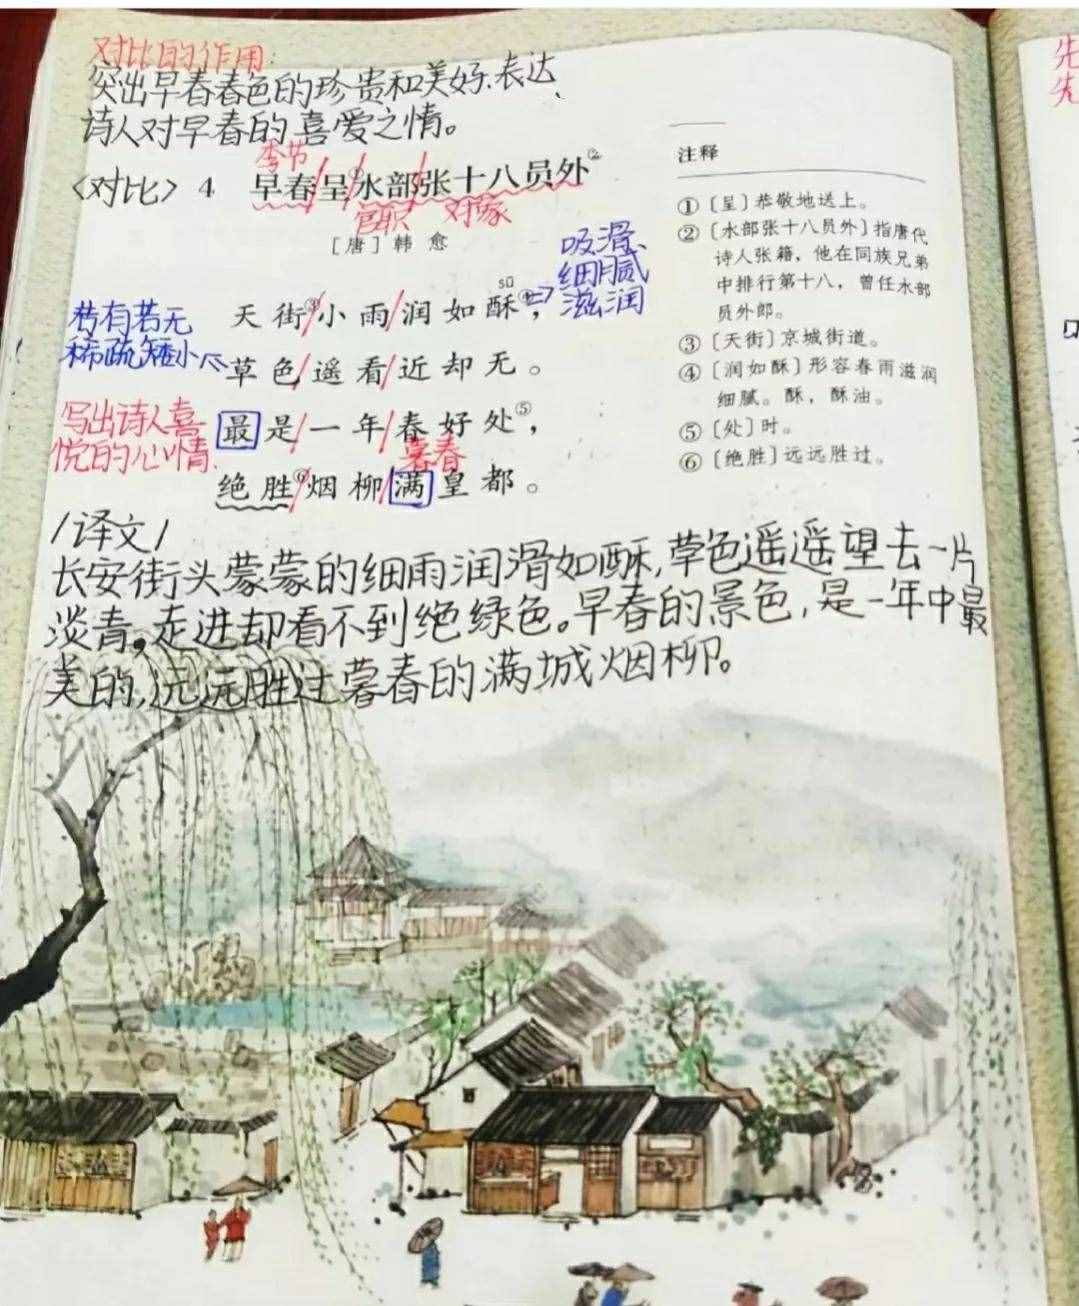 对比的作用:
突出早春春色的珍贵和美好.表达
诗人对早春的喜爱之情。
季节
<对比> 4 早春/呈①/水部/张十八员外②
官职 对象
[唐] 韩 愈
sū
天街③/小雨/润如酥④,
吸滑、
细腻
滋润
若有若无
稀疏矮小
草色/遥看/近却无。
写出诗人喜
悦的心情.
最是/一年/春好处⑤,
暮春
绝胜⑥/烟柳/满皇都。
注释
① 〔呈〕恭敬地送上。
② 〔水部张十八员外〕指唐代
诗人张籍,他在同族兄弟
中排行第十八,曾任水部
员外郎。
③ 〔天街〕京城街道。
④ 〔润如酥〕形容春雨滋润
细腻。酥,酥油。
⑤ 〔处〕时。
⑥ 〔绝胜〕远远胜过。
/译文/
长安街头蒙蒙的细雨润滑如酥,草色遥遥望去一片
淡青。走进却看不到绝绿色。早春的景色,是一年中最
美的,远远胜过暮春的满城烟柳。
先
先